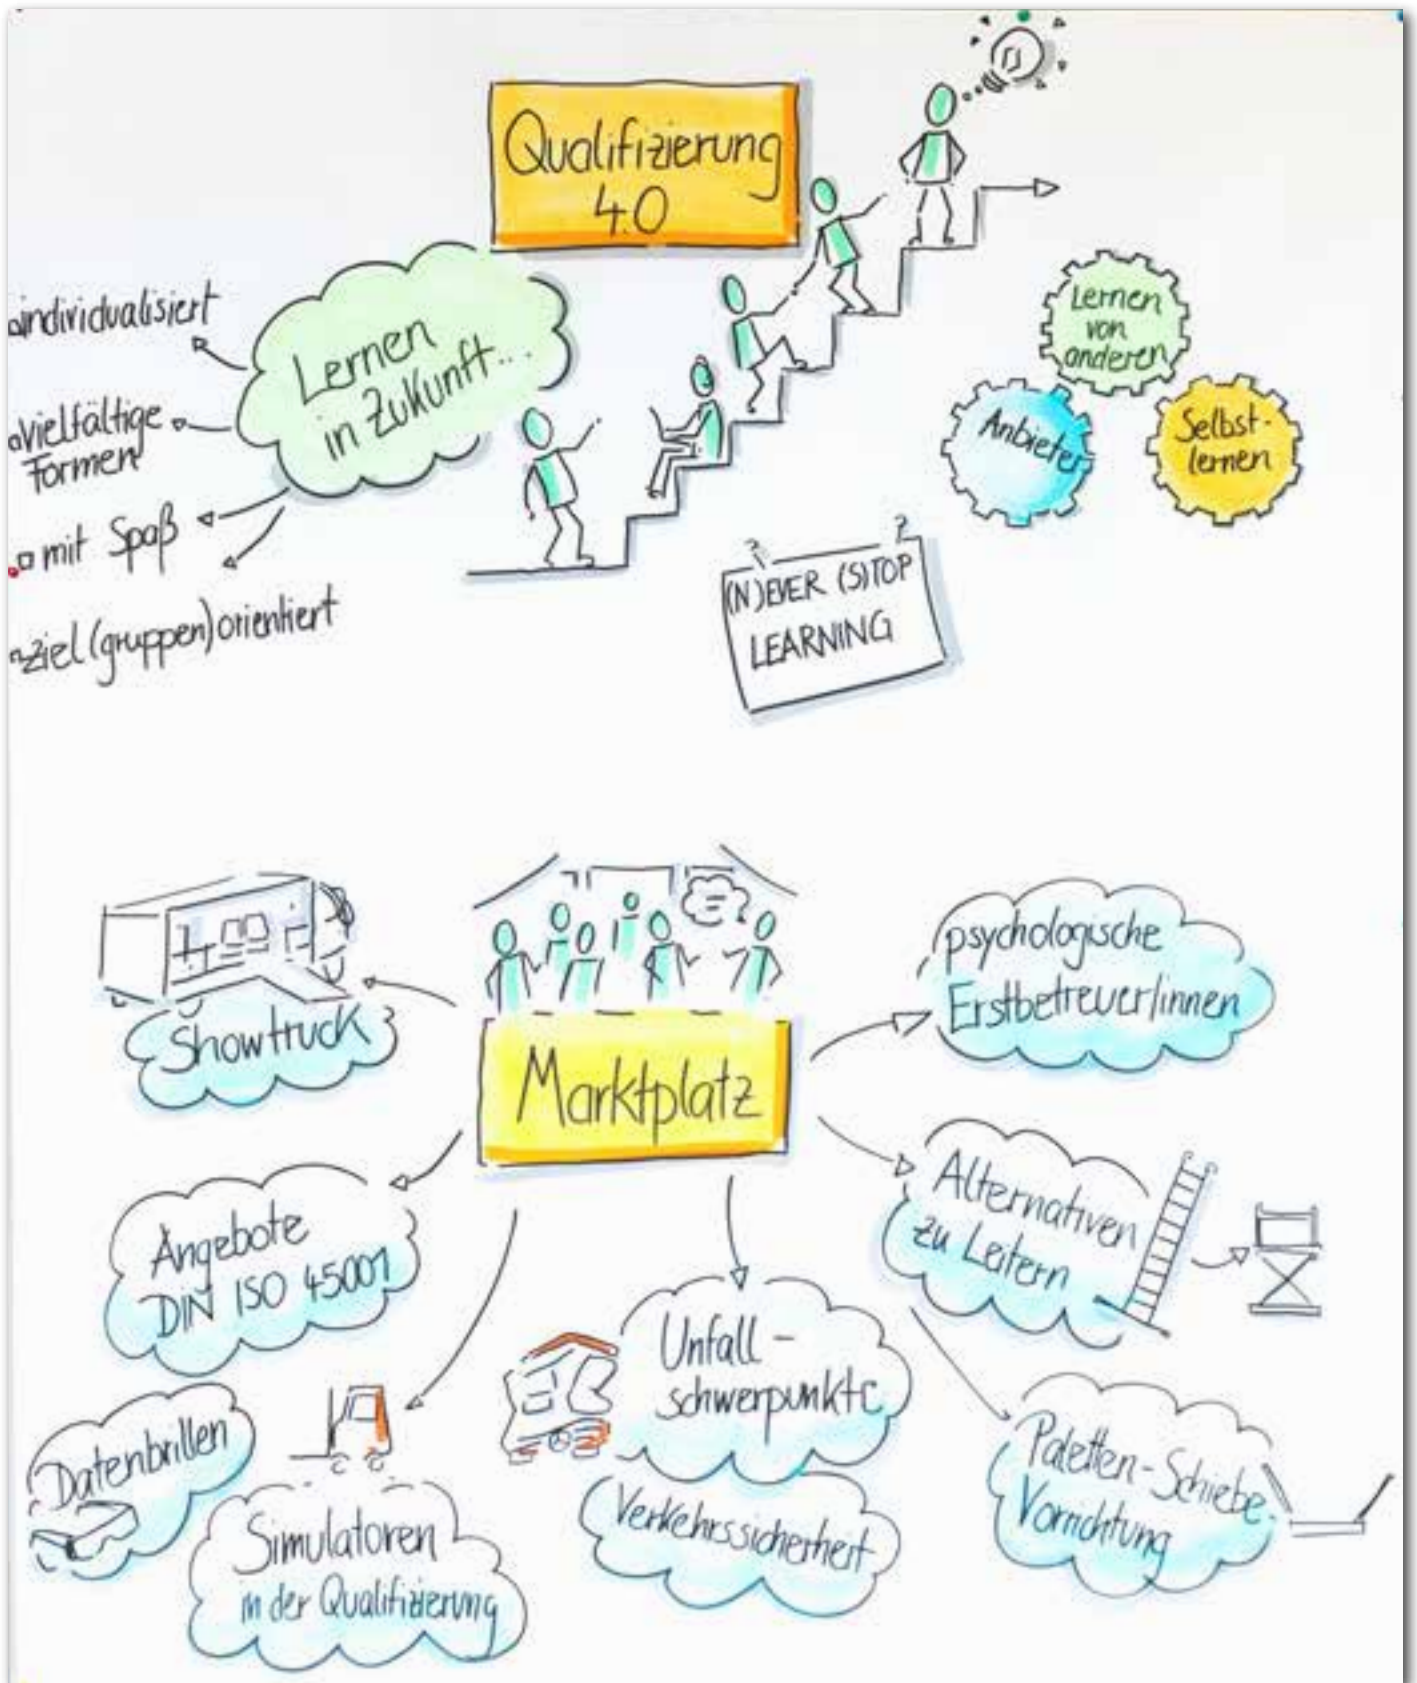 Qualifizierung
4.0
Lernen
in Zukunft...
individualisiert
vielfältige
Formen
mit Spaß
ziel(gruppen)orientiert
Lernen
von
anderen
Anbieter
Selbst-
lernen
(N)EVER (S)TOP
LEARNING
Marktplatz
Showtruck
psychologische
Erstbetreuer/innen
Angebote
DIN ISO 45001
Alternativen
zu Leitern
Unfall-
schwerpunkte
Verkehrssicherheit
Datenbrillen
Simulatoren
in der Qualifizierung
Paletten-Schiebe-
Vorrichtung